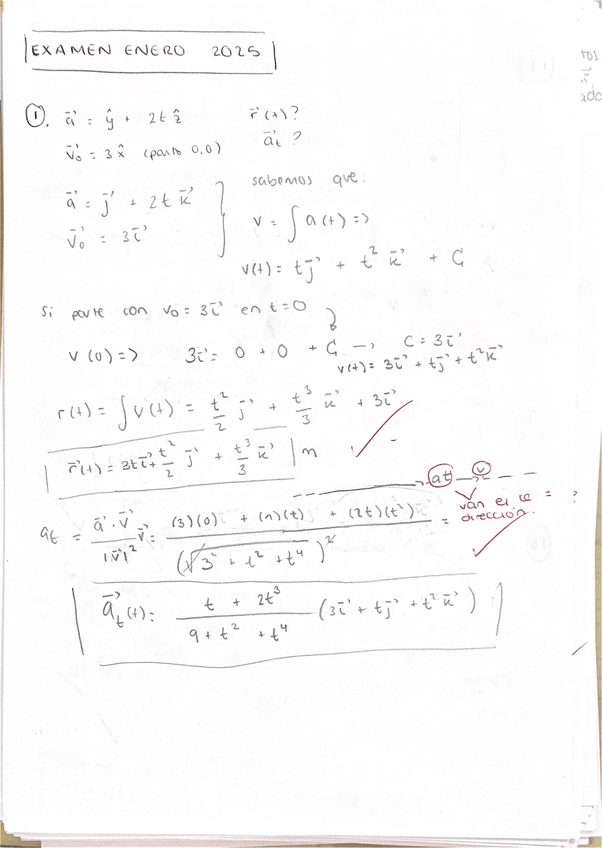 EXAMEN ENERO 2025
1. a⃗ = ŷ + 2t ẑ r⃗(t)?
v⃗₀ = 3 x̂ (parto 0,0) a⃗t ?
a⃗ = j⃗ + 2t k⃗ sabemos que:
v⃗₀ = 3i⃗ v = ∫ a(t) =>
v(t) = t j⃗ + t² k⃗ + C
Si parte con v₀ = 3i⃗ en t=0
v(0) => 3i⃗ = 0 + 0 + C → C = 3i⃗
v(t) = 3i⃗ + tj⃗ + t²k⃗
r(t) = ∫ v(t) = t²/2 j⃗ + t³/3 k⃗ + 3i⃗
r⃗(t) = 3t i⃗ + t²/2 j⃗ + t³/3 k⃗ m
at v
van en la = ?
dirección
at = a⃗ · v⃗ / |v⃗|² v⃗ = (3)(0) + (1)(t) + (2t)(t²) / (√3² + t² + t⁴)² =
a⃗t(t) = t + 2t³ / 9 + t² + t⁴ (3i⃗ + tj⃗ + t² k⃗)